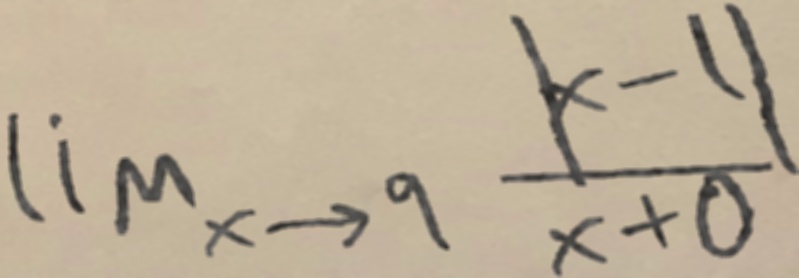 lim x→9 |x-1|/x+0